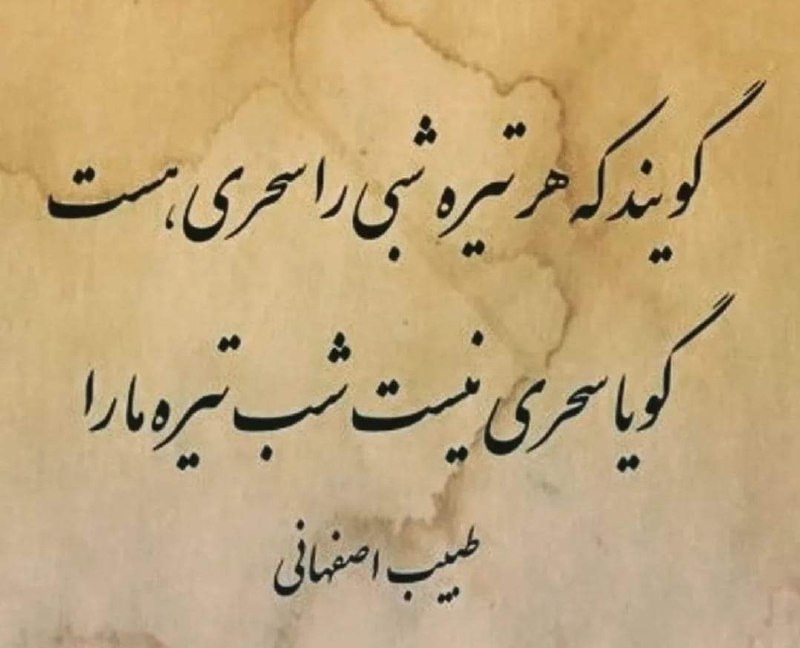 گویند که هر تیره شبی را سحری هست
گویا سحری نیست شب تیره ما را
طبیب اصفهانی